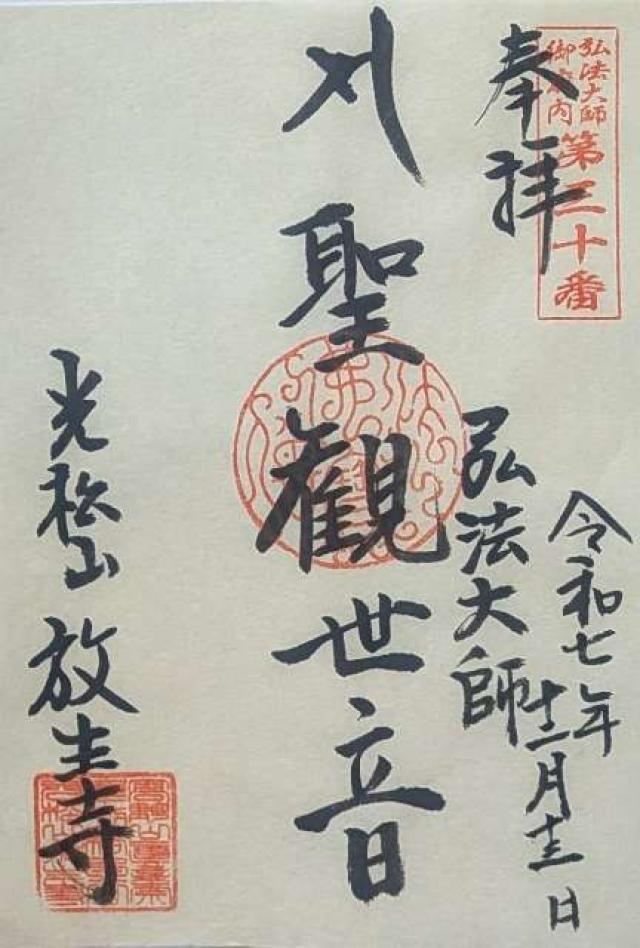 弘法大師
御府内
第三十番
奉拝
令和七年十二月十三日
弘法大師
聖観世音
光松山 放生寺